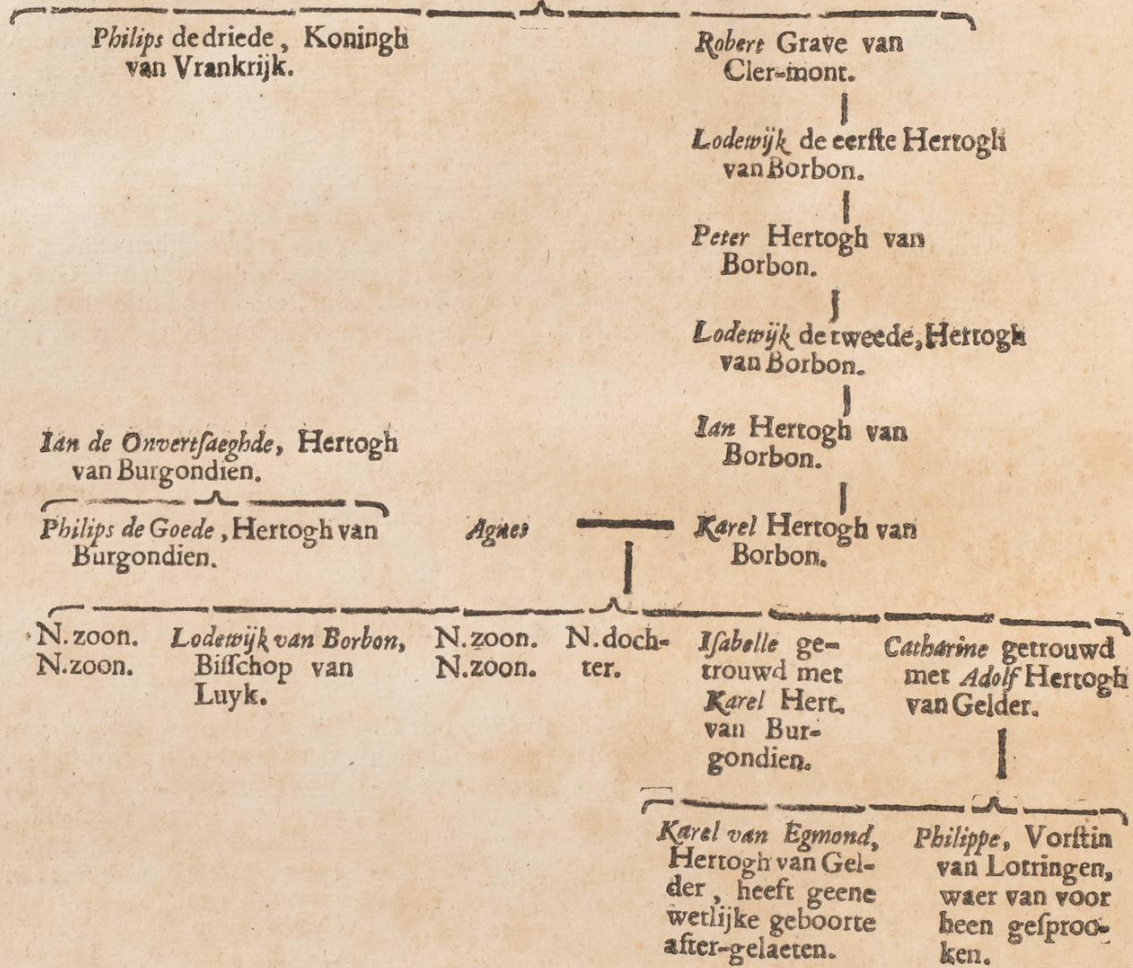 Philips de driede, Koningh
van Vrankrijk.
Robert Grave van
Cler-mont.
Lodewijk de eerſte Hertogh
van Borbon.
Peter Hertogh van
Borbon.
Lodewijk de tweede, Hertogh
van Borbon.
Ian de Onvertſaeghde, Hertogh
van Burgondien.
Ian Hertogh van
Borbon.
Philips de Goede, Hertogh van
Burgondien.
Agnes
Karel Hertogh van
Borbon.
N. zoon.
N. zoon.
Lodewijk van Borbon,
Biſſchop van
Luyk.
N. zoon.
N. zoon.
N. doch-
ter.
Iſabelle ge-
trouwd met
Karel Hert.
van Bur-
gondien.
Catharine getrouwd
met Adolf Hertogh
van Gelder.
Karel van Egmond,
Hertogh van Gel-
der, heeft geene
wetlijke geboorte
after-gelaeten.
Philippe, Vorſtin
van Lotringen,
waer van voor
heen geſproo-
ken.